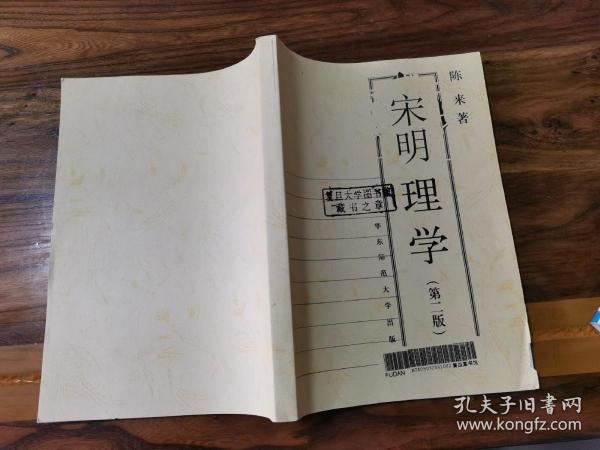 陈来著
宋明理学
(第二版)
华东师范大学出版
复旦大学图书馆
藏书之章
FUDAN
复旦图书馆
孔夫子旧书网
www.kongfz.com